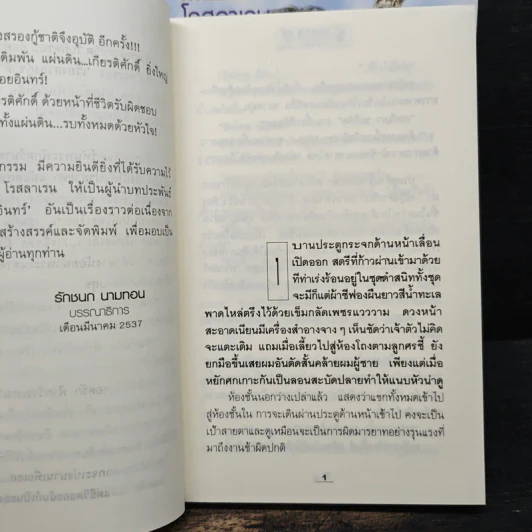 โรสลาเรน
งสรองกู้ชาติจึงอุบัติ อีกครั้ง!!!
ดิมพัน แผ่นดิน...เกียรติศักดิ์ ยิ่งใหญ่
อยอินทร์!
ยรติศักดิ์ ด้วยหน้าที่ชีวิตรับผิดชอบ
ทั้งแผ่นดิน...รบทั้งหมดด้วยหัวใจ!
กรรม มีความยินดียิ่งที่ได้รับความไว้
โรสลาเรน ให้เป็นผู้นำบทประพันธ์
อินทร์' อันเป็นเรื่องราวต่อเนื่องจาก
สร้างสรรค์และจัดพิมพ์ เพื่อมอบเป็น
ผู้อ่านทุกท่าน
รักชนก นามทอน
บรรณาธิการ
เดือนมีนาคม 2537
บานประตูกระจกด้านหน้าเลื่อน
เปิดออก สตรีที่ก้าวผ่านเข้ามาด้วย
ทีท่าเร่งร้อนอยู่ในชุดดำสนิททั้งชุด
จะมีก็แต่ผ้าชีฟองผืนยาวสีน้ำทะเล
พาดไหล่ตรึงไว้ด้วยเข็มกลัดเพชรแวววาม ดวงหน้า
สะอาดเนียนมีเครื่องสำอางจาง ๆ เห็นชัดว่าเจ้าตัวไม่คิด
จะแตะเติม แถมเมื่อเลี้ยวไปสู่ห้องโถงตามลูกศรชี้ ยัง
ยกมือขึ้นเสยผมอันดัดสั้นคล้ายผมผู้ชาย เพียงแต่เมื่อ
หยักศกเกาะกันเป็นลอนสะบัดปลายทำให้แนบหัวน่าดู
ห้องชั้นนอกว่างเปล่าแล้ว แสดงว่าแขกทั้งหมดเข้าไป
สู่ห้องชั้นใน การจะเดินผ่านประตูด้านหน้าเข้าไป คงจะเป็น
เป้าสายตาและดูเหมือนจะเป็นการผิดมารยาทอย่างรุนแรงที่
มาถึงงานช้าผิดปกติ
๑